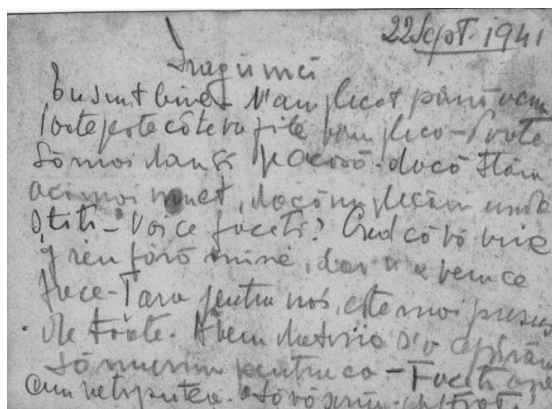 22 Sept. 1941
Dragii mei
Eu sunt bine - N'am plecat până acum
Poate peste câteva zile vom pleca - Poate
să mai dau și pe acasă dacă stăm
aci mai mult, dacă nu plecăm unde
știti - Voi ce faceti? Cred că vă vine
greu fără mine, dar n'avem ce
face - Țara pentru noi este mai presus
de toate. Avem datoria s'o apărăm
să murim pentru ea - Faceti
cum veti putea. să vă